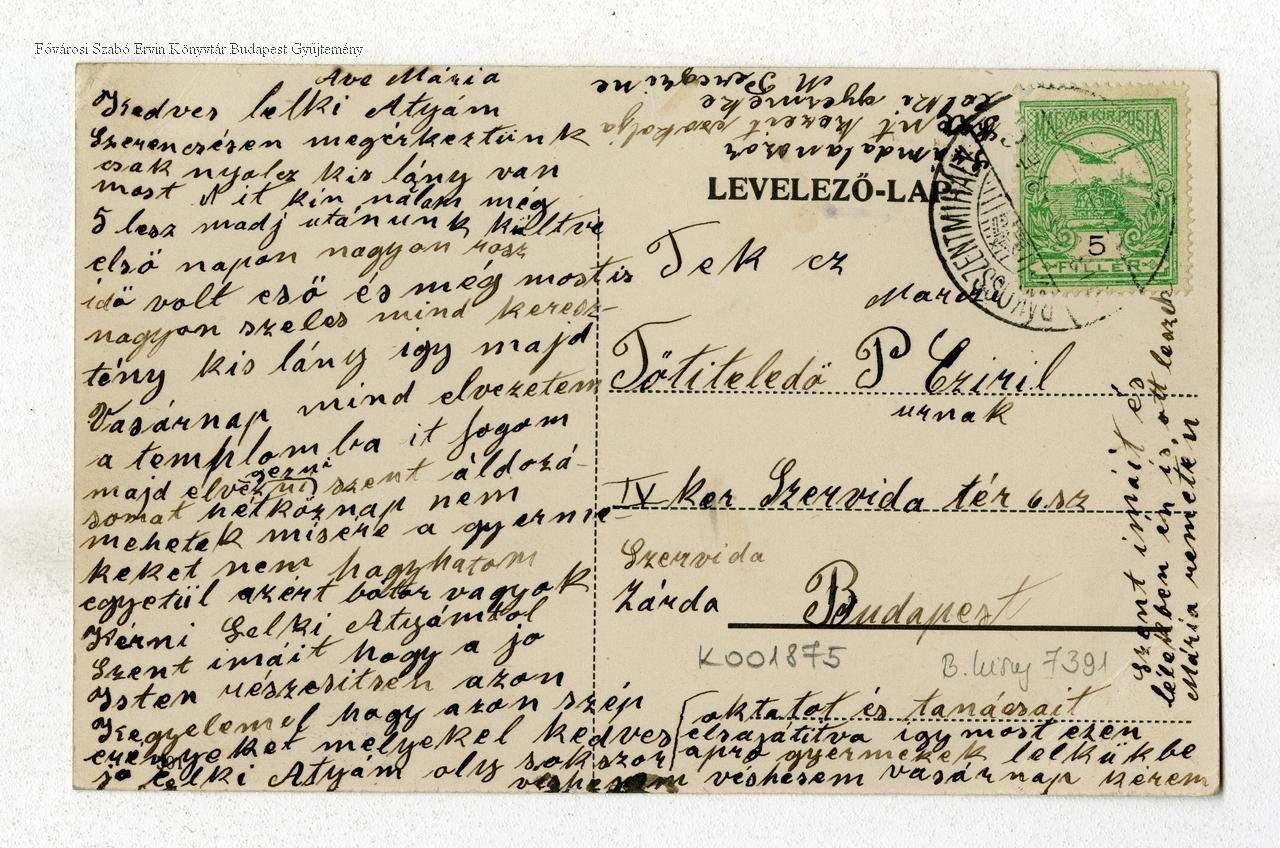 Fővárosi Szabó Ervin Könyvtár Budapest Gyűjtemény
Ave Mária
Kedves lelki Atyám
Szerencsésen megérkeztünk
csak nyolcz kis lány van
most it kin nálam még
5 lesz madj utánunk küldve
első napon nagyon rosz
idő volt eső és még most is
nagyon szeles mind keresz-
tény kis lány így majd
Vasárnap mind elvezetem
a templomba it fogom
majd elvégezni szent áldozá-
somat hétköznap nem
mehetek misére a gyerme-
keket nem hagyhatom
egyetül azért bátor vagyok
Kérni Lelki Atyámtol
Szent imáit hogy a jo
Isten részesitsen azon
Kegyelemel hogy azon szép
erényeket melyekel kedves
jo lelki Atyám oly sokszor
oktatot és tanácsait
elsajátitva igy most ezen
apró gyermekek lelkükbe
véshesem vasárnap kérem
Szent imáit és
lélekben én is ott leszek
Mária remetén
Szent kezeit csokolja
lelki gyermeke
M Peregrine
LEVELEZŐ-LAP
MAGYAR KIR. POSTA
5
FILLÉR
RÁKOSSZENTMIHÁLY
Tek ez
Tötiteledő P Cziril
urnak
IV ker Szervida tér 6.sz
Szervida
Zárda
Budapest
K001875
7391